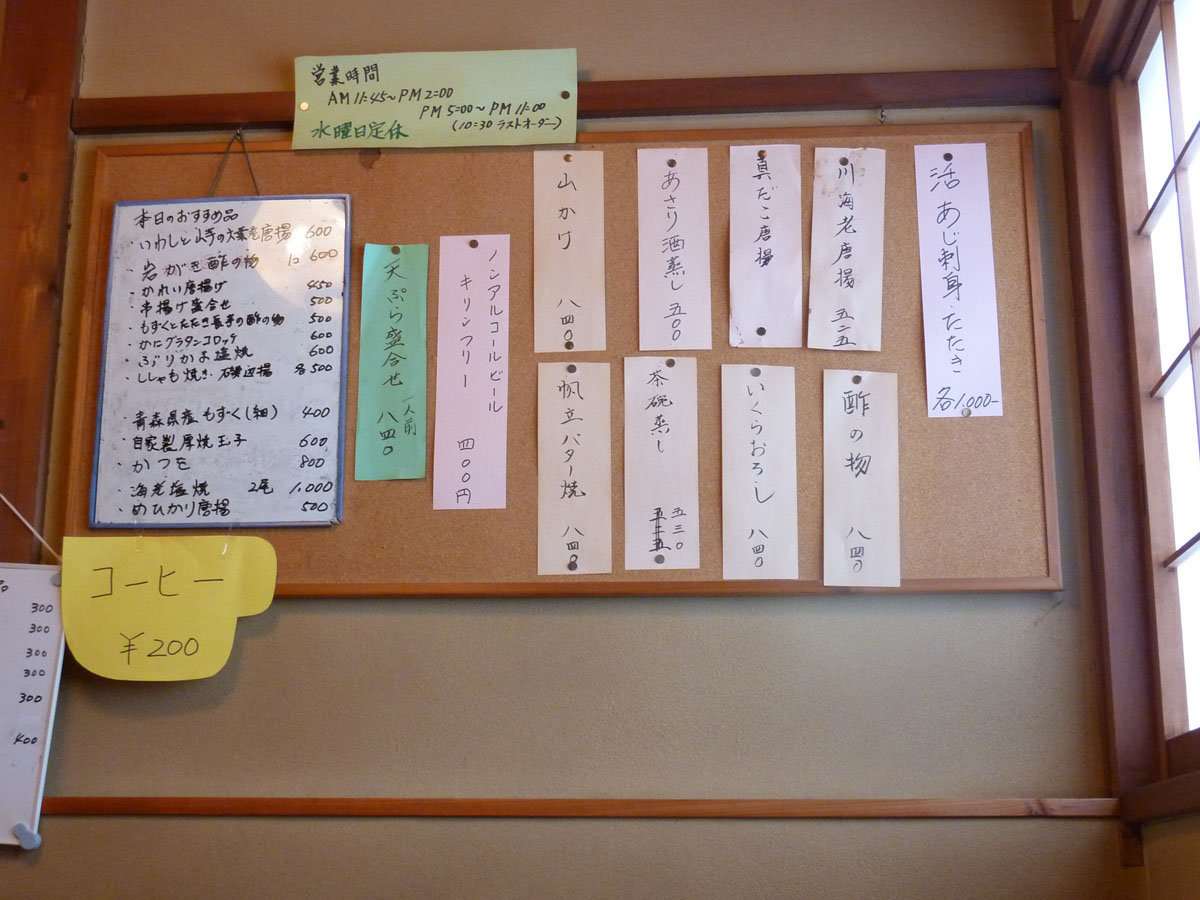 営業時間
AM 11:45~PM 2:00
PM 5:00~PM 11:00
(10:30 ラストオーダー)
水曜日定休
本日のおすすめ品
・いわしと 唐揚 600
・岩がき酢の物 1コ 600
・かれい唐揚げ 450
・串揚げ盛合せ 500
・もずくとたたき長芋の酢の物 500
・かにグラタンコロッケ 600
・ぶりかま塩焼 600
・ししゃも焼き・磯辺揚 各500
・青森県産もずく(細) 400
・自家製厚焼玉子 600
・かつを 800
・海老塩焼 2尾 1,000
・めひかり唐揚 500
天ぷら盛合せ 一人前 八四〇
ノンアルコールビール
キリンフリー 四〇〇円
山かけ 八四〇
あさり酒蒸し 五〇〇
真だこ唐揚
川海老唐揚 五二五
活あじ刺身・たたき 各1,000-
帆立バター焼 八四〇
茶碗蒸し 五三〇
五二五
いくらおろし 八四〇
酢の物 八四〇
コーヒー
¥200
300
300
300
300
300
400